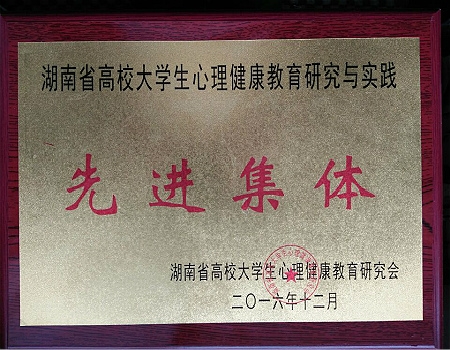 湖南省高校大学生心理健康教育研究与实践
先进集体
湖南省高校大学生心理健康教育研究会
二〇一六年十二月